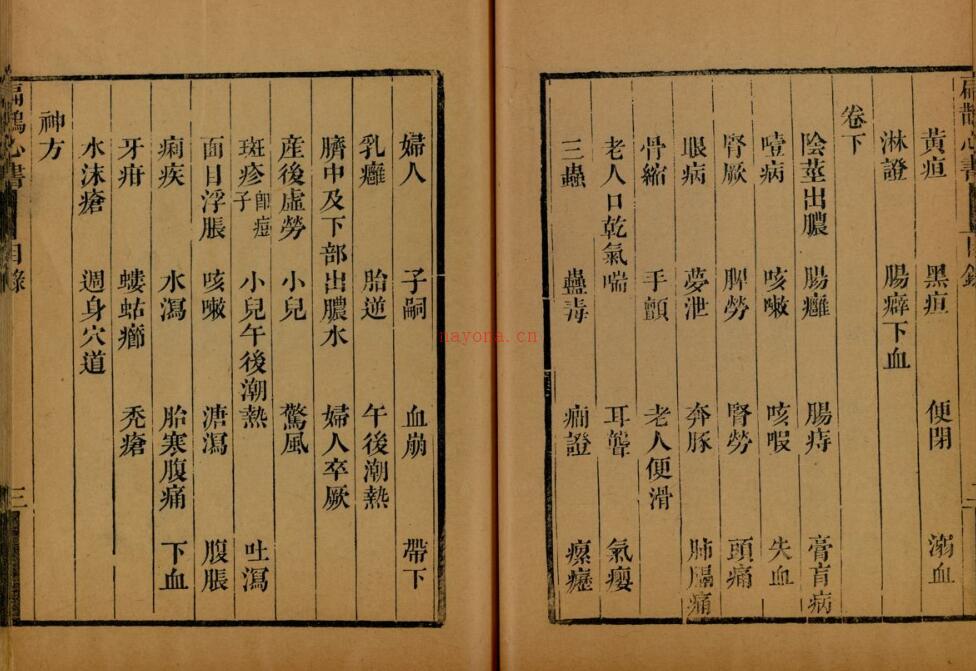 扁鵲心書 目錄 二
黃疸 黑疸 便閉 溺血
淋證 腸癖下血
卷下
陰莖出膿 腸癰 腸痔 膏肓病
噎病 咳嗽 咳嘏 失血
腎厥 脾勞 腎勞 頭痛
眼病 夢泄 奔豚 肺膈痛
骨縮 手顫 老人便滑
老人口乾氣喘 耳聾 氣癭
三蟲 蠱毒 痫證 瘰癧
婦人 子嗣 血崩 帶下
乳癰 胎逆 午後潮熱
臍中及下部出膿水 婦人卒厥
產後虛勞 小兒 驚風
斑疹即痘子 小兒午後潮熱 吐瀉
面目浮脹 咳嗽 溏瀉 腹脹
痢疾 水瀉 胎寒腹痛 下血
牙疳 螻蛄癤 禿瘡
水沫瘡 週身穴道
神方
扁鵲心書 目錄 三
nayona.cn